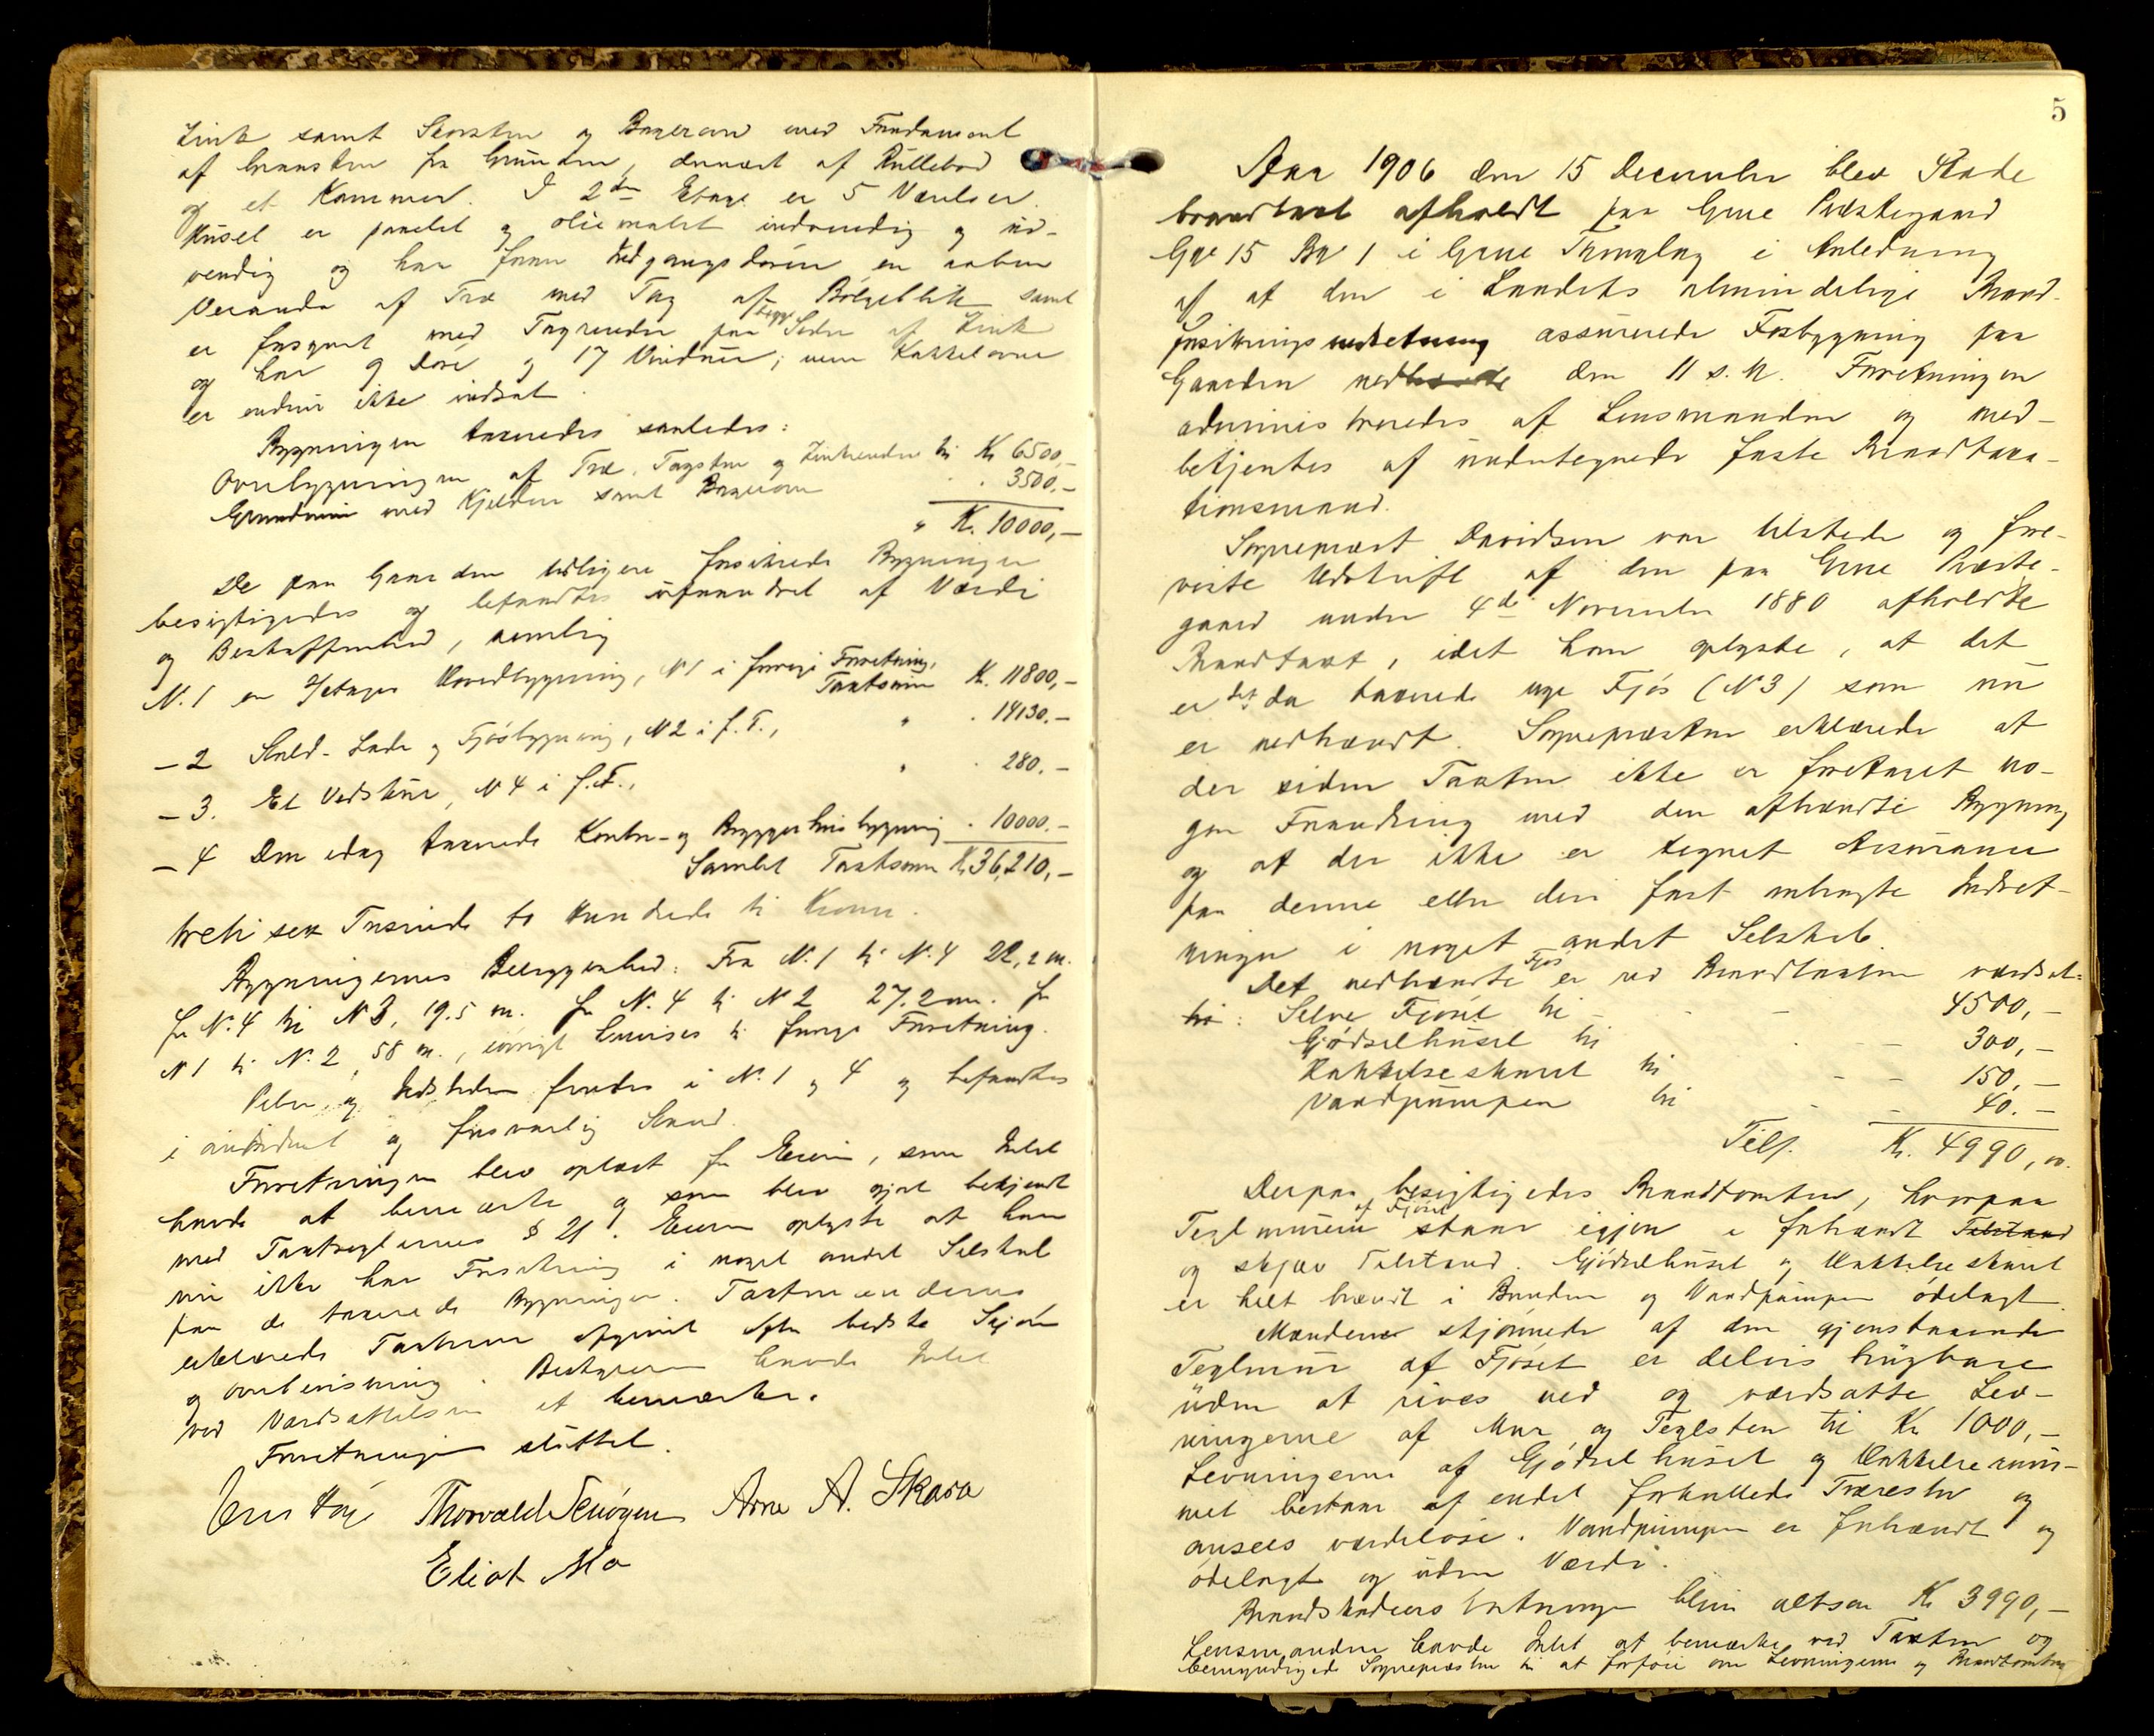 Zink samt Skorsten og Bagerovn med Fundament
af Graasten fra Grunden, dernæst af Rullebod
og et Kammer. I 2den Etage er 5 Værelser.
Huset er panelet og oliemalet indvendig og ud-
vendig og har foran Indgangsdøren en aaben
Veranda af Træ med Tag af Bølgeblik samt
er forsynet med Tagrender paa begge Sider af Zink
og har 9 Døre og 17 Vinduer; men Kakkelovne
er endnu ikke indsat.
Bygningen taxeredes saaledes:
Overbygningen af Træ, Tagsten og Zinkrender til Kr 6500,-
Grundmur med Kjelder samt Bagerovn 3500,-
" Kr. 10000,-
De paa Gaarden tidligere forsikrede Bygninger
besigtigedes og befandtes uforandret af Værdi
og Beskaffenhed, nemlig
N. 1 en 2 Etages Hovedbygning, N 1 i forrige Forretning,
Taxtsum Kr. 11800,-
- 2 Stald- Lade og Fjøsbygning, N 2 i f. F., " . 14130.-
- 3. Et Vedskur, N 4 i f. F., " . 280.-
- 4 Den idag taxerede Kontor- og Bryggerhusbygning . 10000.-
Samlet Taxtsum Kr 36,210,-
treti sex Tusinde to Hundrede ti Kroner.
Bygningernes Beliggenhed: Fra N. 1 til N. 4 22,2 m.
fra N. 4 til N 3, 19.5 m. fra N. 4 til N 2 27.2 m. fra
N 1 til N. 2, 58 m., øvrigt henvises til forrige Forretning.
Piber og Ildsteder findes i N. 1 og 4 og befandtes
i anordnet og forsvarlig Stand.
Forretningen blev oplæst for Eieren, som Intet
havde at bemærke og som blev gjort bekjendt
med Taxtreglernes § 21. Eieren oplyste at han
nu ikke har Forsikring i noget andet Selskab
paa de taxerede Bygninger. Taxtmændene
erklærede Taxterne afgivet efter bedste Skjøn
og Overbevisning. Bestyreren havde Intet
ved Værdsættelsen at bemærke.
Forretningen sluttet.
Thorvald Arne A. Skara
Eliat Mo
5
Aar 1906 den 15 December blev Skade
brandtaxt afholdt paa Grue Præstegaard
Gne 15 Bn 1 i Grue Thinglag i Anledning
af at den i Landets almindelige Brand-
forsikringsindretning assurerede Fjøsbygning paa
Gaarden nedbrændte den 11 s. M. Forretningen
administreredes af Lensmanden og med-
betjentes af undertegnede faste Brandtaxa-
tionsmænd.
Sogneprest Davidsen var tilstede og fore-
viste Udskrift af den paa Grue Præste-
gaard under 4de November 1880 afholdte
Brandtaxt, idet han oplyste, at det
er det da taxerede nye Fjøs (N 3) som nu
er nedbrændt. Sognepræsten erklærede at
der siden Taxten ikke er foretaget no-
gen Forandring med den afbrændte Bygning
og at der ikke er tegnet Assurance
paa denne eller den fast anbragte Indret-
ninger i noget andet Selskab.
Det nedbrændte Fjøs er ved Brandtaxten værdsat
til: Selve Fjøset til - - - 4500,-
Gjødselhuset til - - 300,-
Hakkelseskuret til - - 150,-
Vandpumpen til - - 40.-
Tils. Kr. 4990,00.
Derpaa besigtigedes Brandtomten, hvorpaa
Teglmuren af Fjøset staar igjen i forbrændt Tilstand
og skjæv Tilstand. Gjødselhuset og Hakkelseskuret
er helt brændt i Bunden og Vandpumpen ødelagt.
Mændene skjønnede at den gjenstaaende
Teglmur af Fjøset er delvis brugbare
uden at rives ned og værdsatte Lev-
ningerne af Mur og Teglsten til Kr 1000,-
Levningerne af Gjødselhuset og Hakkelserum-
met bestaar af endel forkullede Trærester og
ansees værdiløse. Vandpumpen er forbrændt og
ødelagt og uden Værdi.
Brandskadeerstatningen bliver altsaa Kr 3990,-
Lensmanden havde Intet at bemærke ved Taxten og
bemyndigede Sognepræsten til at forføie over Levningerne og Brandtomten